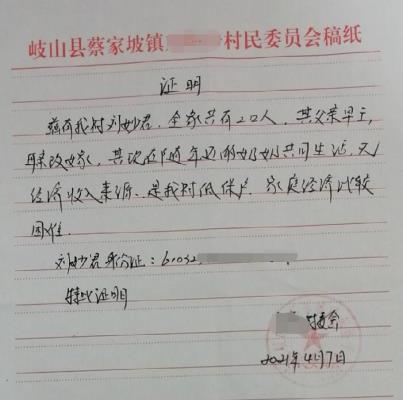 岐山县蔡家坡镇 村民委员会稿纸
证明
兹有我村刘妙君,全家共有二口人,其父早亡,
母亲改嫁,其现在随年迈的奶奶共同生活,无
经济收入来源,是我村低保户,家庭经济比较
困难.
刘妙君身份证:61032
特此证明
村委会
2021年4月7日